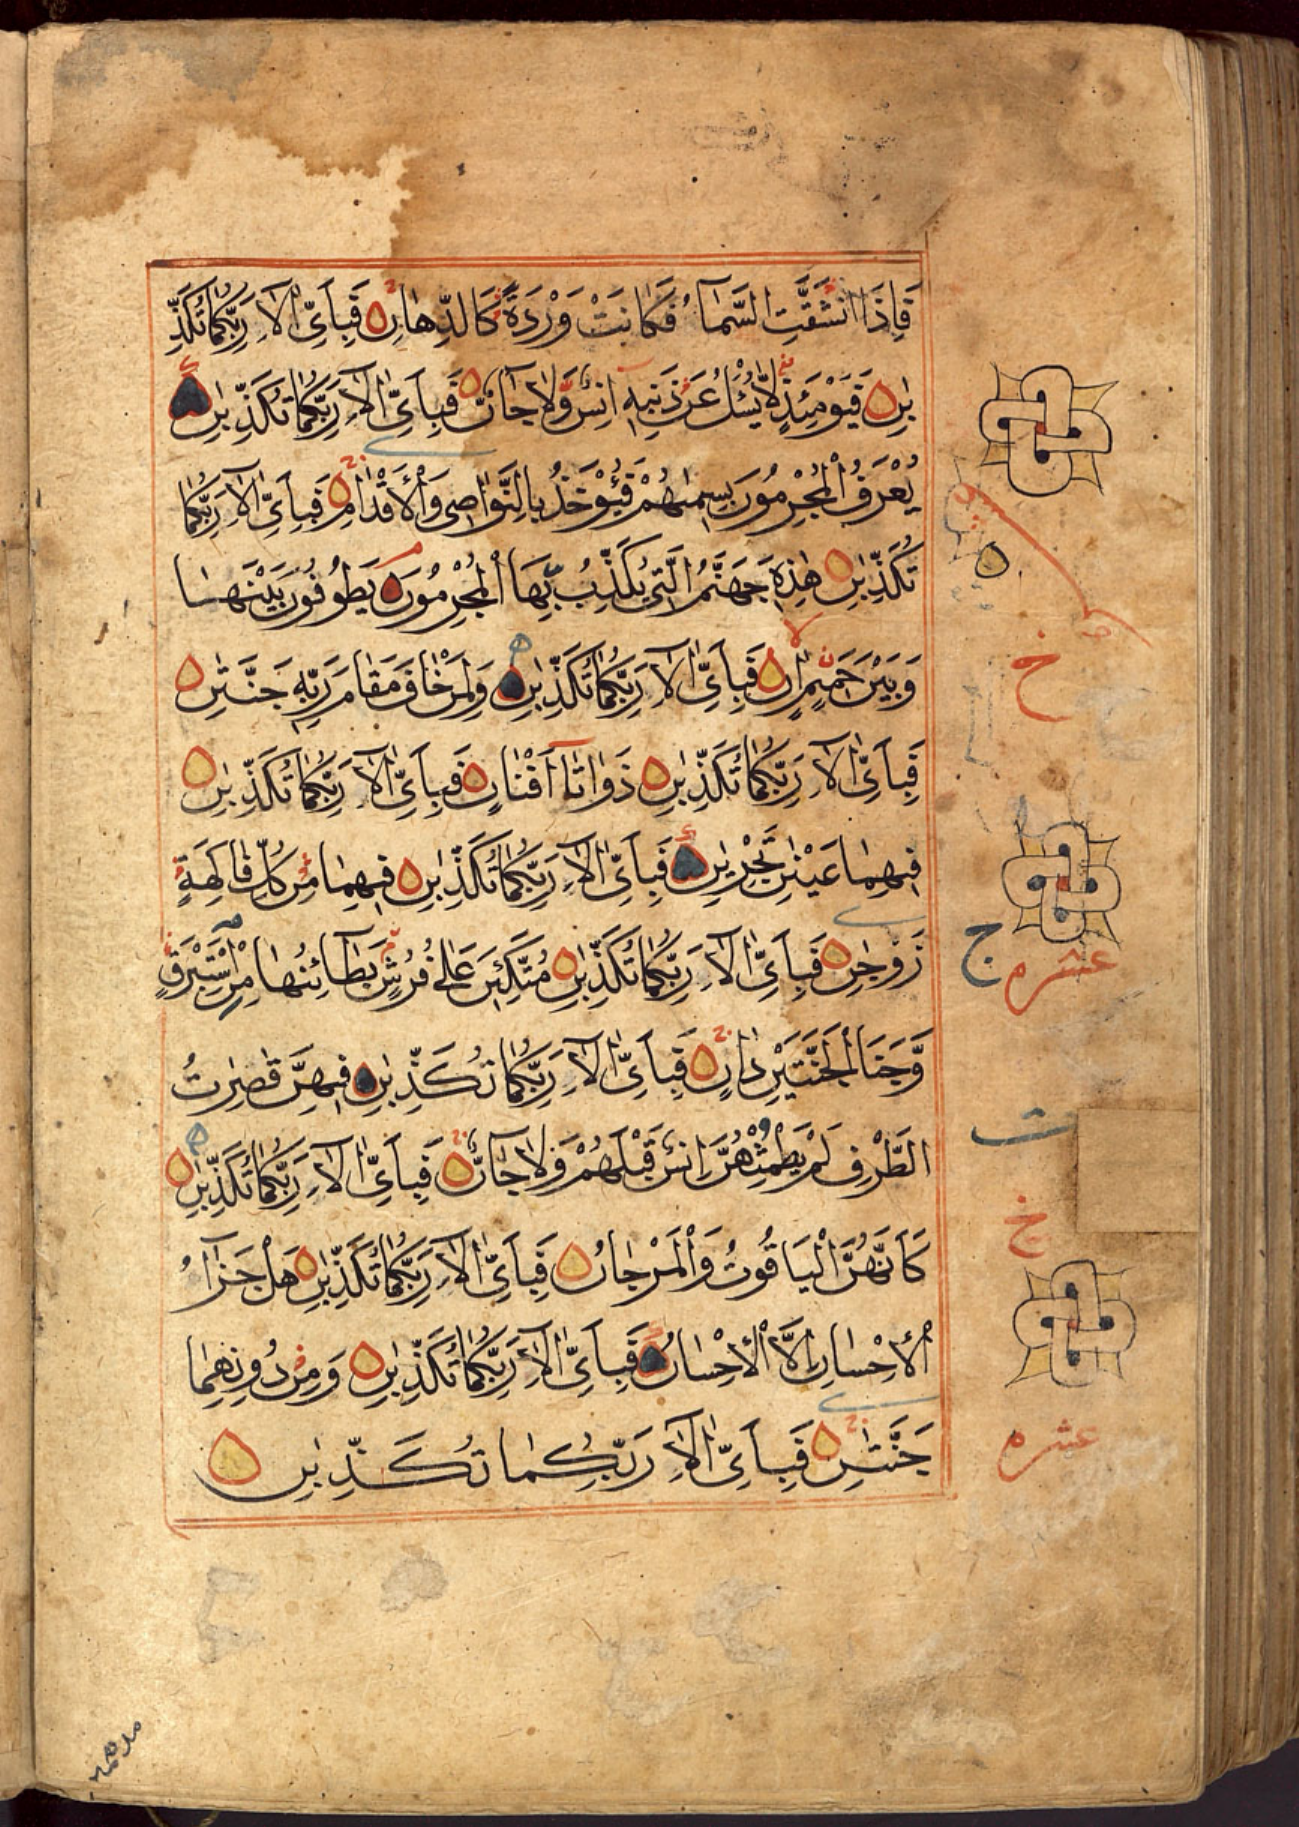 فَاِذَا انْشَقَّتِ السَّمَآءُ فَكَانَتْ وَرْدَةً كَالدِّهَانِ فَبِاَىِّ اٰلَآءِ رَبِّكُمَا تُكَذِّ
بٰنِ فَيَوْمَئِذٍ لَّا يُسْئَلُ عَنْ ذَنْبِهٖٓ اِنْسٌ وَّلَا جَآنٌّ فَبِاَىِّ اٰلَآءِ رَبِّكُمَا تُكَذِّبٰنِ
يُعْرَفُ الْمُجْرِمُوْنَ بِسِيْمٰهُمْ فَيُؤْخَذُ بِالنَّوَاصِى وَالْاَقْدَامِ فَبِاَىِّ اٰلَآءِ رَبِّكُمَا
تُكَذِّبٰنِ هٰذِهٖ جَهَنَّمُ الَّتِىْ يُكَذِّبُ بِهَا الْمُجْرِمُوْنَ يَطُوْفُوْنَ بَيْنَهَا
وَبَيْنَ حَمِيْمٍ اٰنٍ فَبِاَىِّ اٰلَآءِ رَبِّكُمَا تُكَذِّبٰنِ وَلِمَنْ خَافَ مَقَامَ رَبِّهٖ جَنَّتٰنِ
فَبِاَىِّ اٰلَآءِ رَبِّكُمَا تُكَذِّبٰنِ ذَوَاتَآ اَفْنَانٍ فَبِاَىِّ اٰلَآءِ رَبِّكُمَا تُكَذِّبٰنِ
فِيْهِمَا عَيْنٰنِ تَجْرِيٰنِ فَبِاَىِّ اٰلَآءِ رَبِّكُمَا تُكَذِّبٰنِ فِيْهِمَا مِنْ كُلِّ فَاكِهَةٍ
زَوْجٰنِ فَبِاَىِّ اٰلَآءِ رَبِّكُمَا تُكَذِّبٰنِ مُتَّكِئِيْنَ عَلٰى فُرُشٍ بَطَآئِنُهَا مِنْ اِسْتَبْرَقٍ
ج عشر م
وَّجَنَا الْجَنَّتَيْنِ دَانٍ فَبِاَىِّ اٰلَآءِ رَبِّكُمَا تُكَذِّبٰنِ فِيْهِنَّ قٰصِرٰتُ
الطَّرْفِ لَمْ يَطْمِثْهُنَّ اِنْسٌ قَبْلَهُمْ وَلَا جَآنٌّ فَبِاَىِّ اٰلَآءِ رَبِّكُمَا تُكَذِّبٰنِ
كَاَنَّهُنَّ الْيَاقُوْتُ وَالْمَرْجَانُ فَبِاَىِّ اٰلَآءِ رَبِّكُمَا تُكَذِّبٰنِ هَلْ جَزَآءُ
الْاِحْسَانِ اِلَّا الْاِحْسَانُ فَبِاَىِّ اٰلَآءِ رَبِّكُمَا تُكَذِّبٰنِ وَمِنْ دُوْنِهِمَا
جَنَّتٰنِ فَبِاَىِّ اٰلَآءِ رَبِّكُمَا تُكَذِّبٰنِ
عشر م